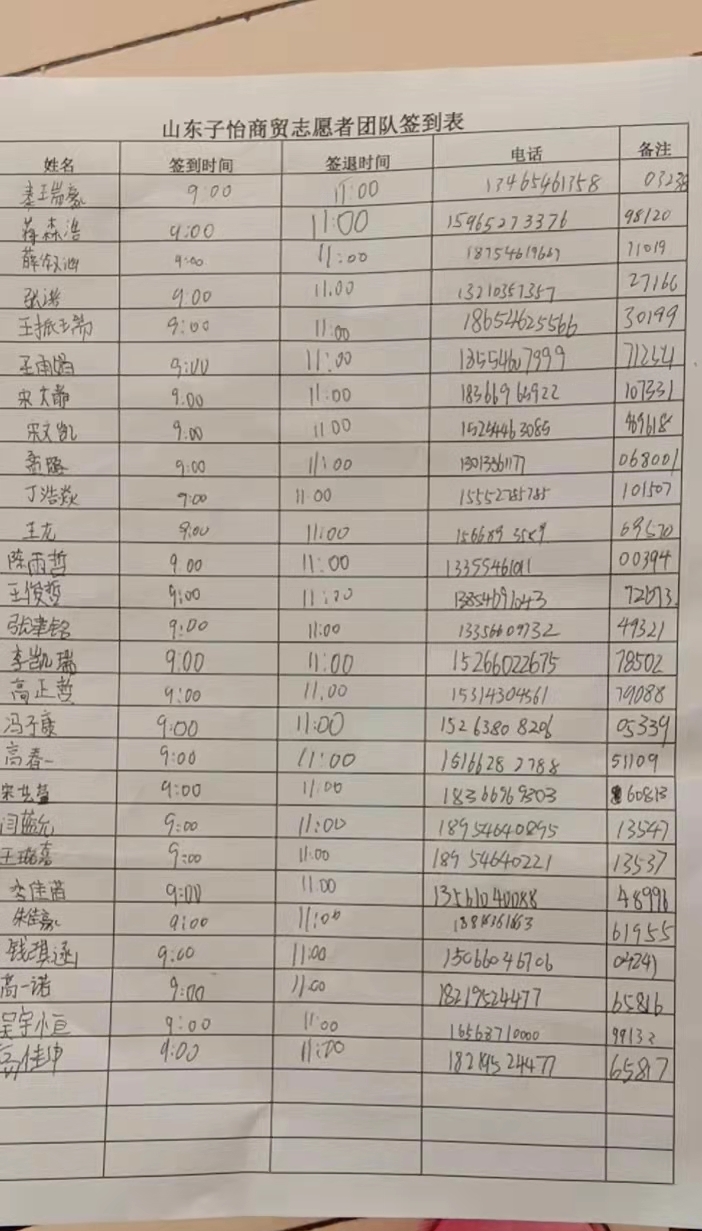 山东子怡商贸志愿者团队签到表
姓名 签到时间 签退时间 电话 备注
9:00 11:00 13465461358 03238
蒋森浩 9:00 11:00 15965273376 98120
薛 9:00 11:00 18754619667 71019
张洪 9:00 11.00 13210357357 27166
王振瑞 9:00 11:00 18654625566 30199
9:00 11:00 13554607999
宋文静 9:00 11:00 18366965922 107331
宋文凯 9:00 11 00 15254463085
9:00 11:00 068001
丁浩焱 9:00 11:00 15552785785 101507
王龙 9:00 11:00 69570
陈雨哲 9.00 11:00 13355461011 00394
王俊哲 9:00
张津铭 9:00 11:00 13356609732 49321
李凯瑞 9:00 11:00 15266022675 78502
高正哲 9:00 11.00 15314304561 79088
冯子康 9:00 11:00 152 6380 8206 05339
高春一 9:00 11:00 1516628 2788 51109
9:00 11:00 18366969303 60813
闫蓝允 9:00 11:00 18954640895 13547
9:00 11:00 189 54640221 13537
9:00 11:00 13561040088 48996
朱佳豪 9:00 11:00 61955
钱琪涵 9:00 11:00 15066046706 04241
高一诺 9:00 11:00 18219524477 65816
吴宇恒 9:00 11:00 16568710000 99132
高佳坤 9:00 11:00 18219524477 65817